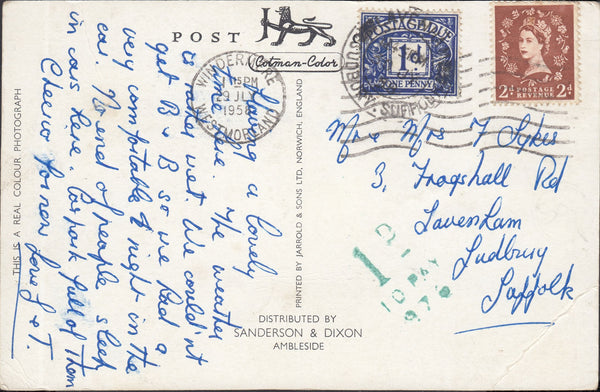 POST
Cotman-Color
WINDERMERE
15PM
9 JL
1958
WESTMORLAND
POSTAGE DUE
1d
ONE PENNY
SUDBURY
SUFFOLK
POSTAGE
REVENUE
2d 2d
Having a lovely
time here. The weather
is rather wet. We couldn't
get B & B so we had a
very comfortable night in the
car. No end of people sleep
in cars here. Car park full of them
Cheerio for now Love J & T.
Mr & Mrs F Sykes
3, Frogshall Rd
Lavenham
Sudbury
Suffolk
1D
TO PAY
THIS IS A REAL COLOUR PHOTOGRAPH
PRINTED BY JARROLD & SONS LTD, NORWICH, ENGLAND
DISTRIBUTED BY
SANDERSON & DIXON
AMBLESIDE